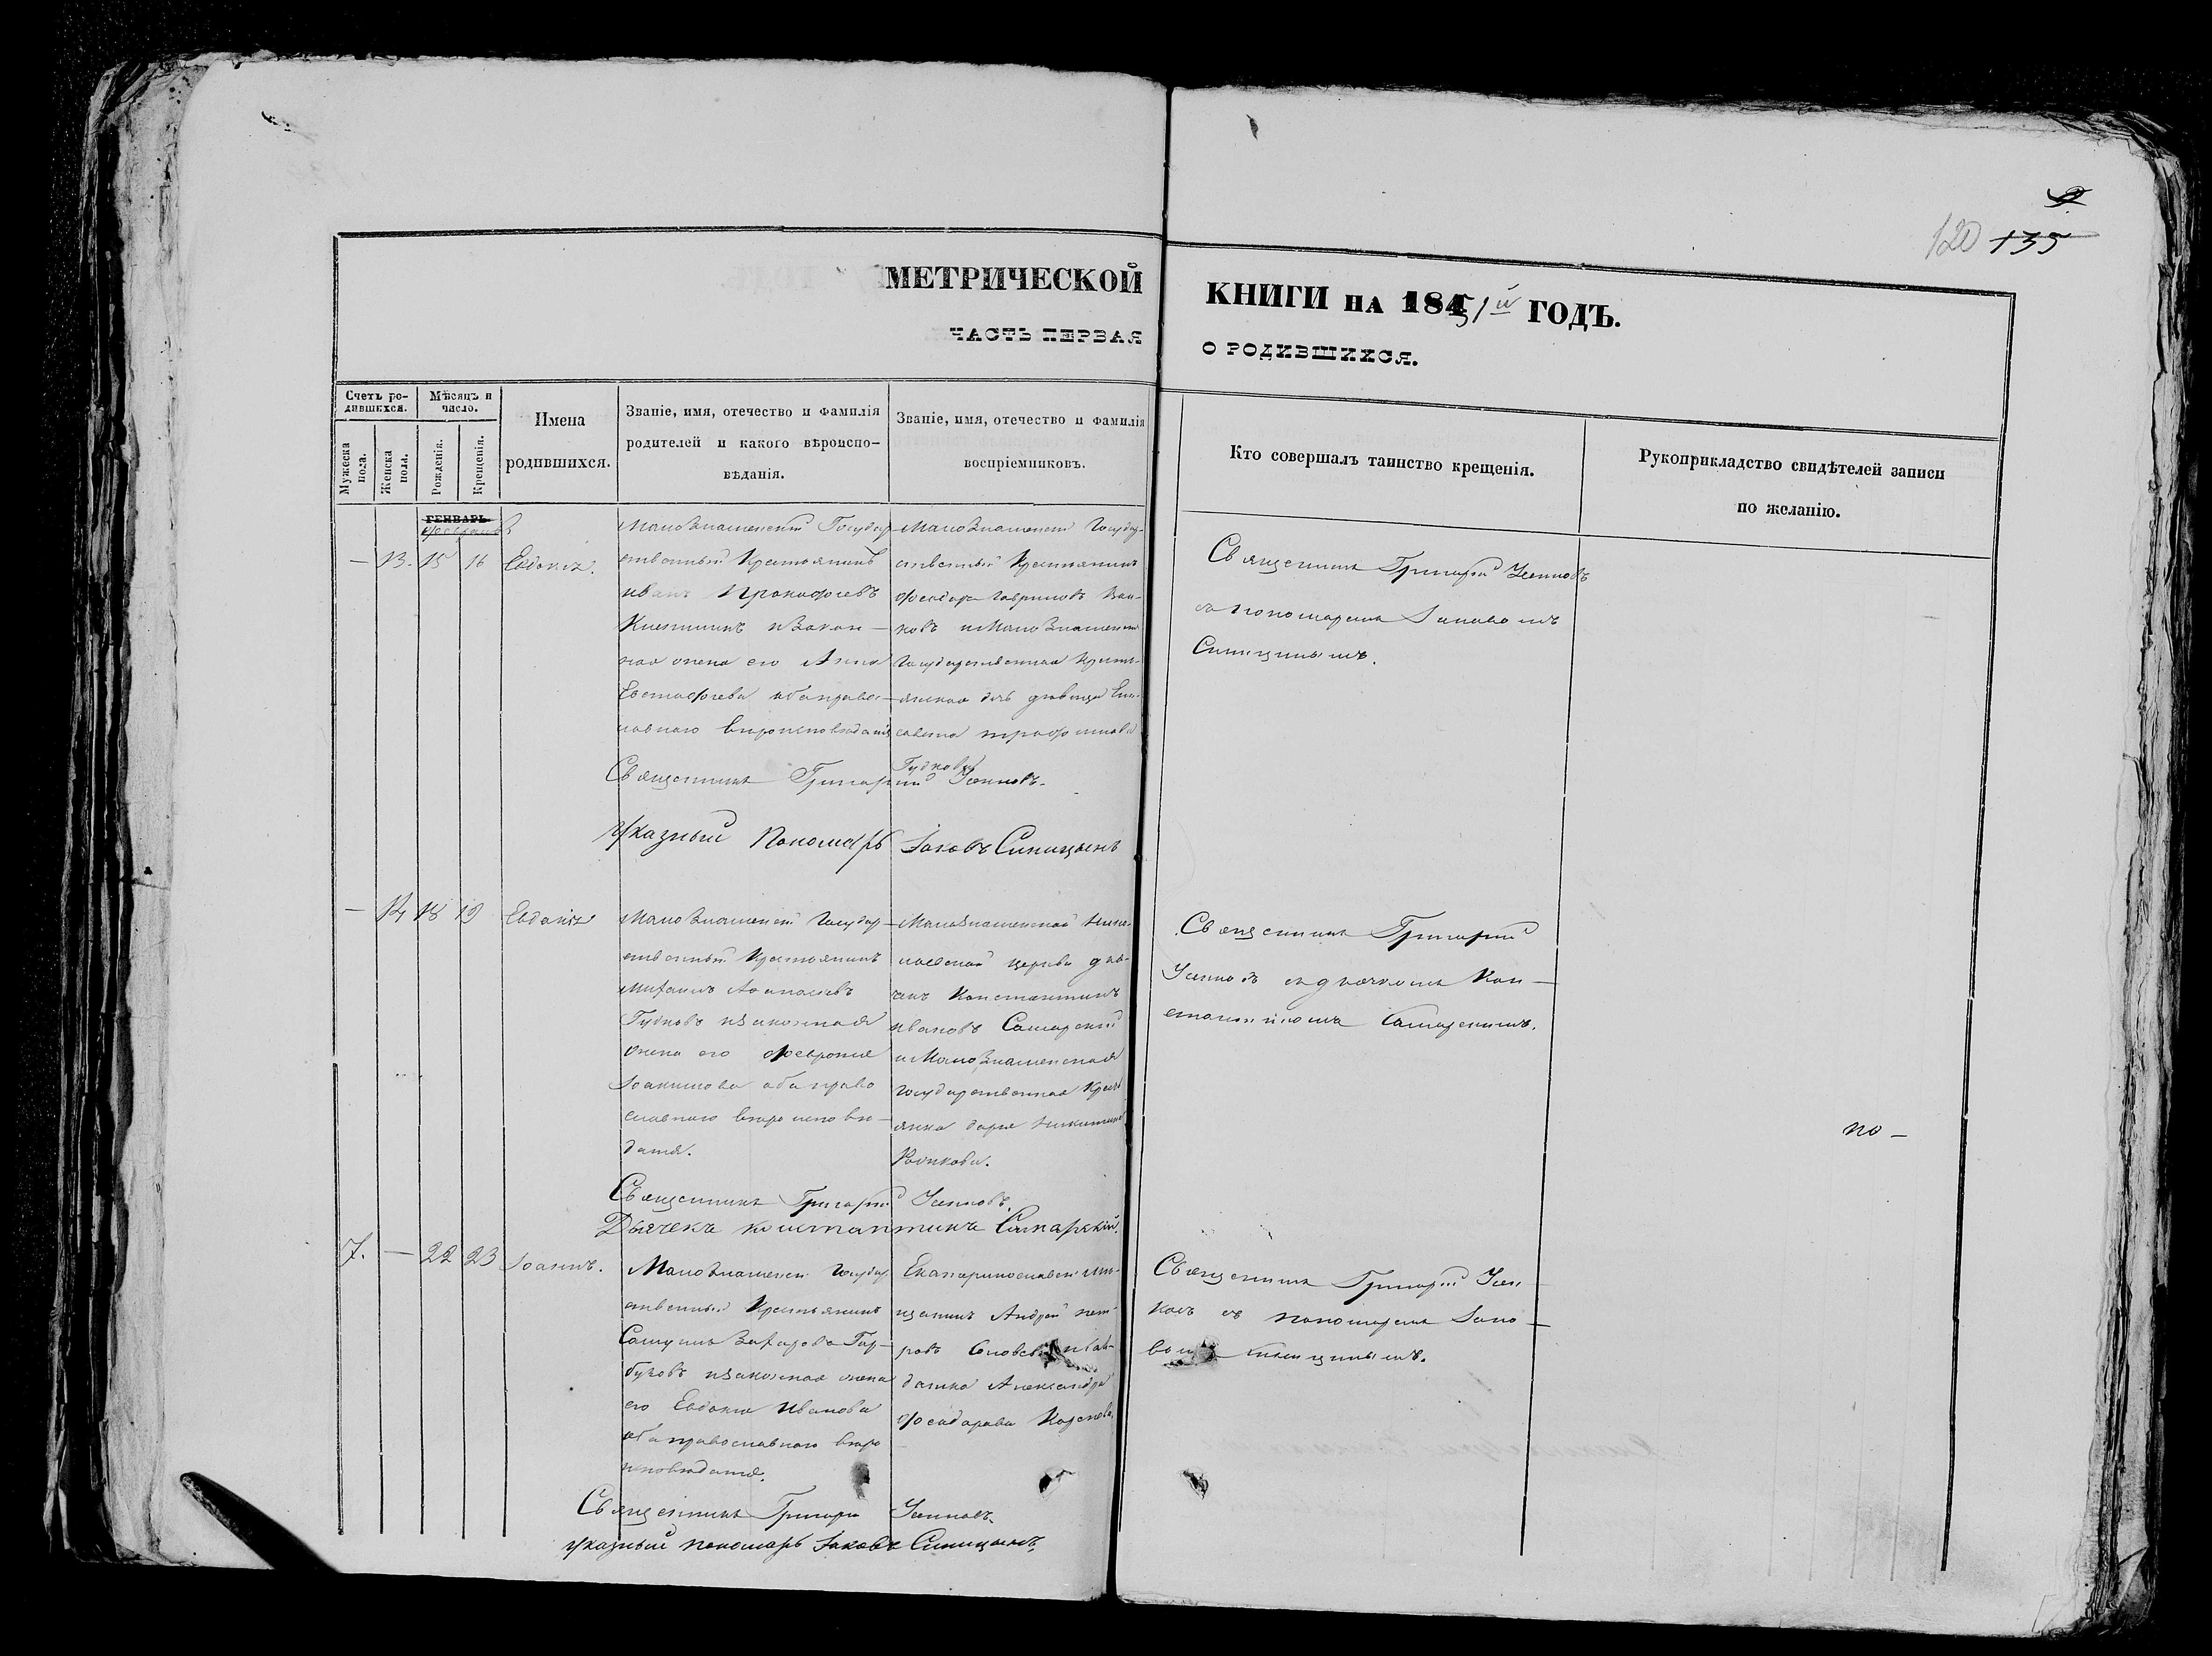 120 135
МЕТРИЧЕСКОЙ КНИГИ НА 1851й ГОДЪ.
ЧАСТЬ ПЕРВАЯ О РОДИВШИХСЯ.
Счетъ родившихся.
Мѣсяцъ и число.
Мужеска пола.
Женска пола.
Рожденія.
Крещенія.
Имена
родившихся.
Званіе, имя, отечество и фамилія
родителей и какого вѣроиспо-
вѣданія.
Званіе, имя, отечество и фамилія
воспріемниковъ.
Кто совершалъ таинство крещенія.
Рукоприкладство свидѣтелей записи
по желанію.
ГЕНВАРЬ
февраль
— 13. 15 16 Евдокія.
Малознаменскій Государ-
ственный Крестьянинъ
Иванъ Прокофіевъ
и Закон-
ная жена его Анна
Евстафіева оба правос-
лавного вероисповеданія
Малознаменскій Государ-
ственный Крестьянинъ
Феодоръ Гавриловъ
и Малознаменская
Государственная Крестьянская
дочь девица Ели-
савета Трофимова
Гудкова
Священникъ Григорій Усенковъ
съ пономаремъ Іаковомъ
Синицинымъ.
Священникъ Григорій Усенковъ.
Указный Пономарь Іаковъ Синицынъ
— 14 18 19 Евдокія
Малознаменскій Государ-
ственный Крестьянинъ
Михаилъ Афанасіевъ
Гудковъ и законная
жена его Феврония
Іоакимова оба право
славного вероисповѣ-
данія.
Малознаменской Нико-
лаевской церкви дья-
чекъ Константинъ
Ивановъ Самарскій
и Малознаменская
Государственная Крестьянка
Дарья Никитина
Священникъ Григорій
Усенковъ съ дьячкомъ Кон-
стантиномъ Самарскимъ.
по —
Священникъ Григорій Усенковъ.
Дьячекъ константинъ Самарскій.
7. — 22 23 Іоаннъ.
Малознаменскій Государ
ственный Крестьянинъ
Самуилъ Захаровъ Гор-
буновъ и законная жена
его Евдокія Иванова
оба православного веро
исповеданія.
Екатеринославскій ме-
щанинъ Андрей Пет-
ровъ
Александра
Феодорова
Священникъ Григорій Усен
ковъ съ пономаремъ Іако-
вомъ Синицинымъ.
Священникъ Григорій Усенковъ.
Указный пономарь Іаковъ Синицынъ.